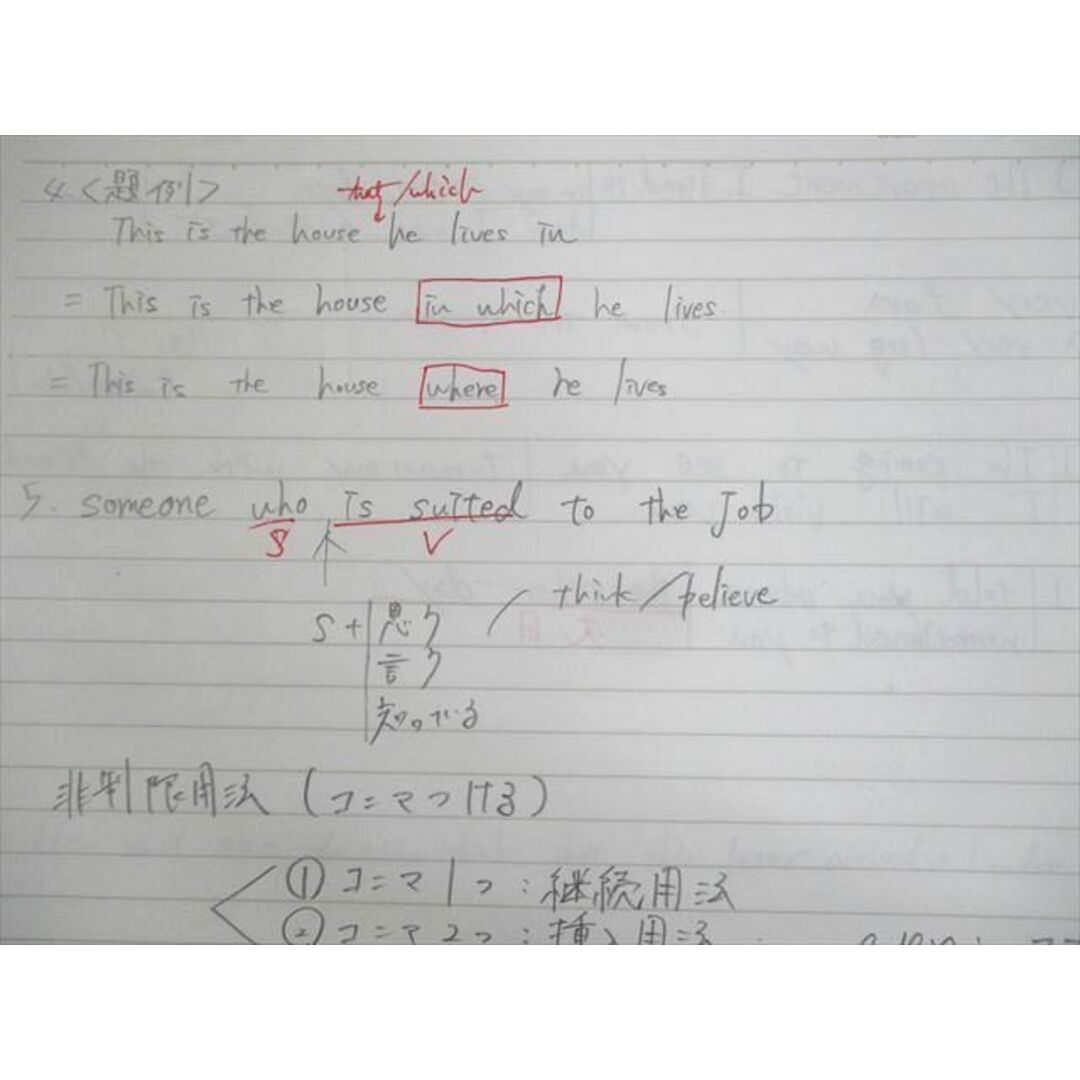 4.<題例>
that/which
This is the house he lives in
= This is the house in which he lives
= This is the house where he lives
5. someone who is suited to the Job
S V
think/believe
S + 思う
言う
知っている
非制限用法 (コンマつける)
① コンマ1つ:継続用法
② コンマ2つ:挿入用法